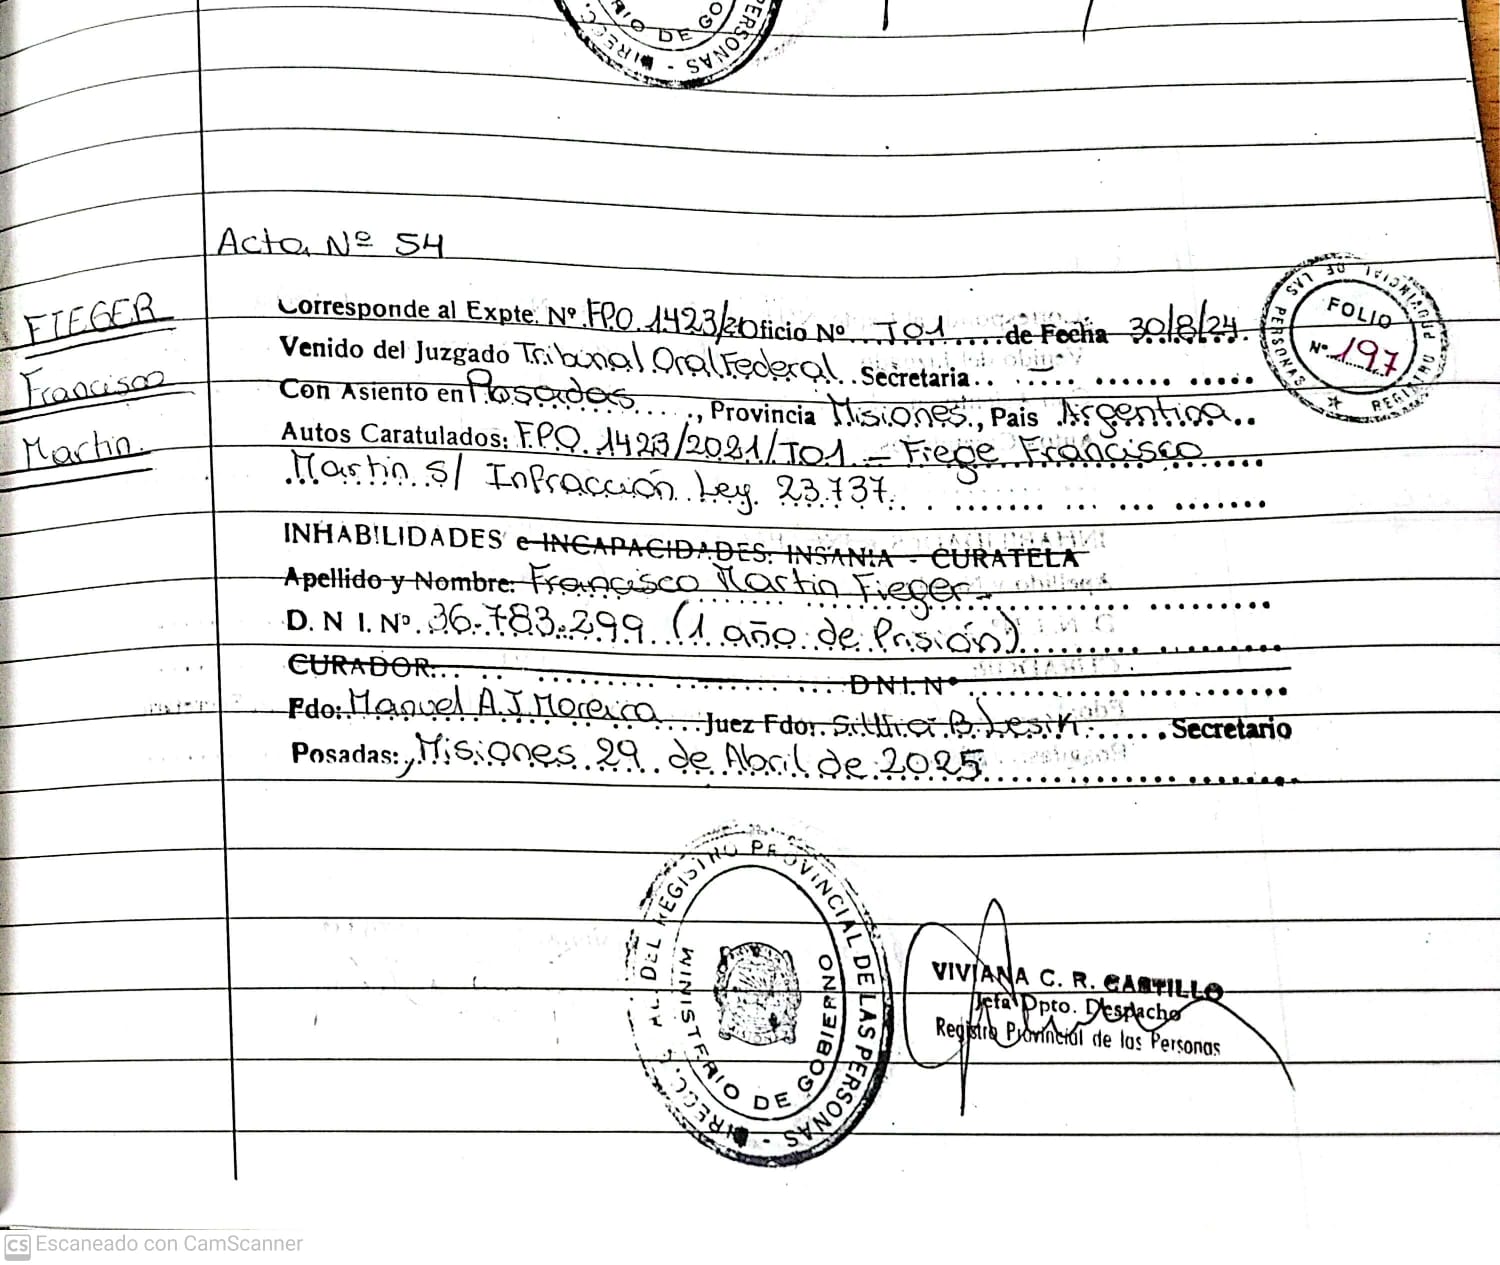 Acta Nº 54
FIEGER
Francisco
Martin.
Corresponde al Expte. Nº FPO 1423/20 Oficio Nº TO1 de Fecha 30/8/24.
Venido del Juzgado Tribunal Oral Federal Secretaria
Con Asiento en Posadas, Provincia Misiones, Pais Argentina
Autos Caratulados: FPO. 1423/2021/TO1 - Fiege Francisco
Martin s/ Infracción Ley. 23.737.
INHABILIDADES e INCAPACIDADES: INSANIA - CURATELA
Apellido y Nombre: Francisco Martin Fieger.
D. N I. Nº 36.783.299 (1 año de Prisión)
CURADOR: DNI. Nº
Fdo: Manuel A.J. Moreira Juez Fdo: Silthia B. Lesik Secretario
Posadas:, Misiones 29 de Abril de 2025
FOLIO
Nº 197
REGISTRO PROVINCIAL DE LAS PERSONAS
MINISTERIO DE GOBIERNO
VIVIANA C. R. CASTILLO
Jefa Dpto. Despacho
Registro Provincial de las Personas
CS Escaneado con CamScanner